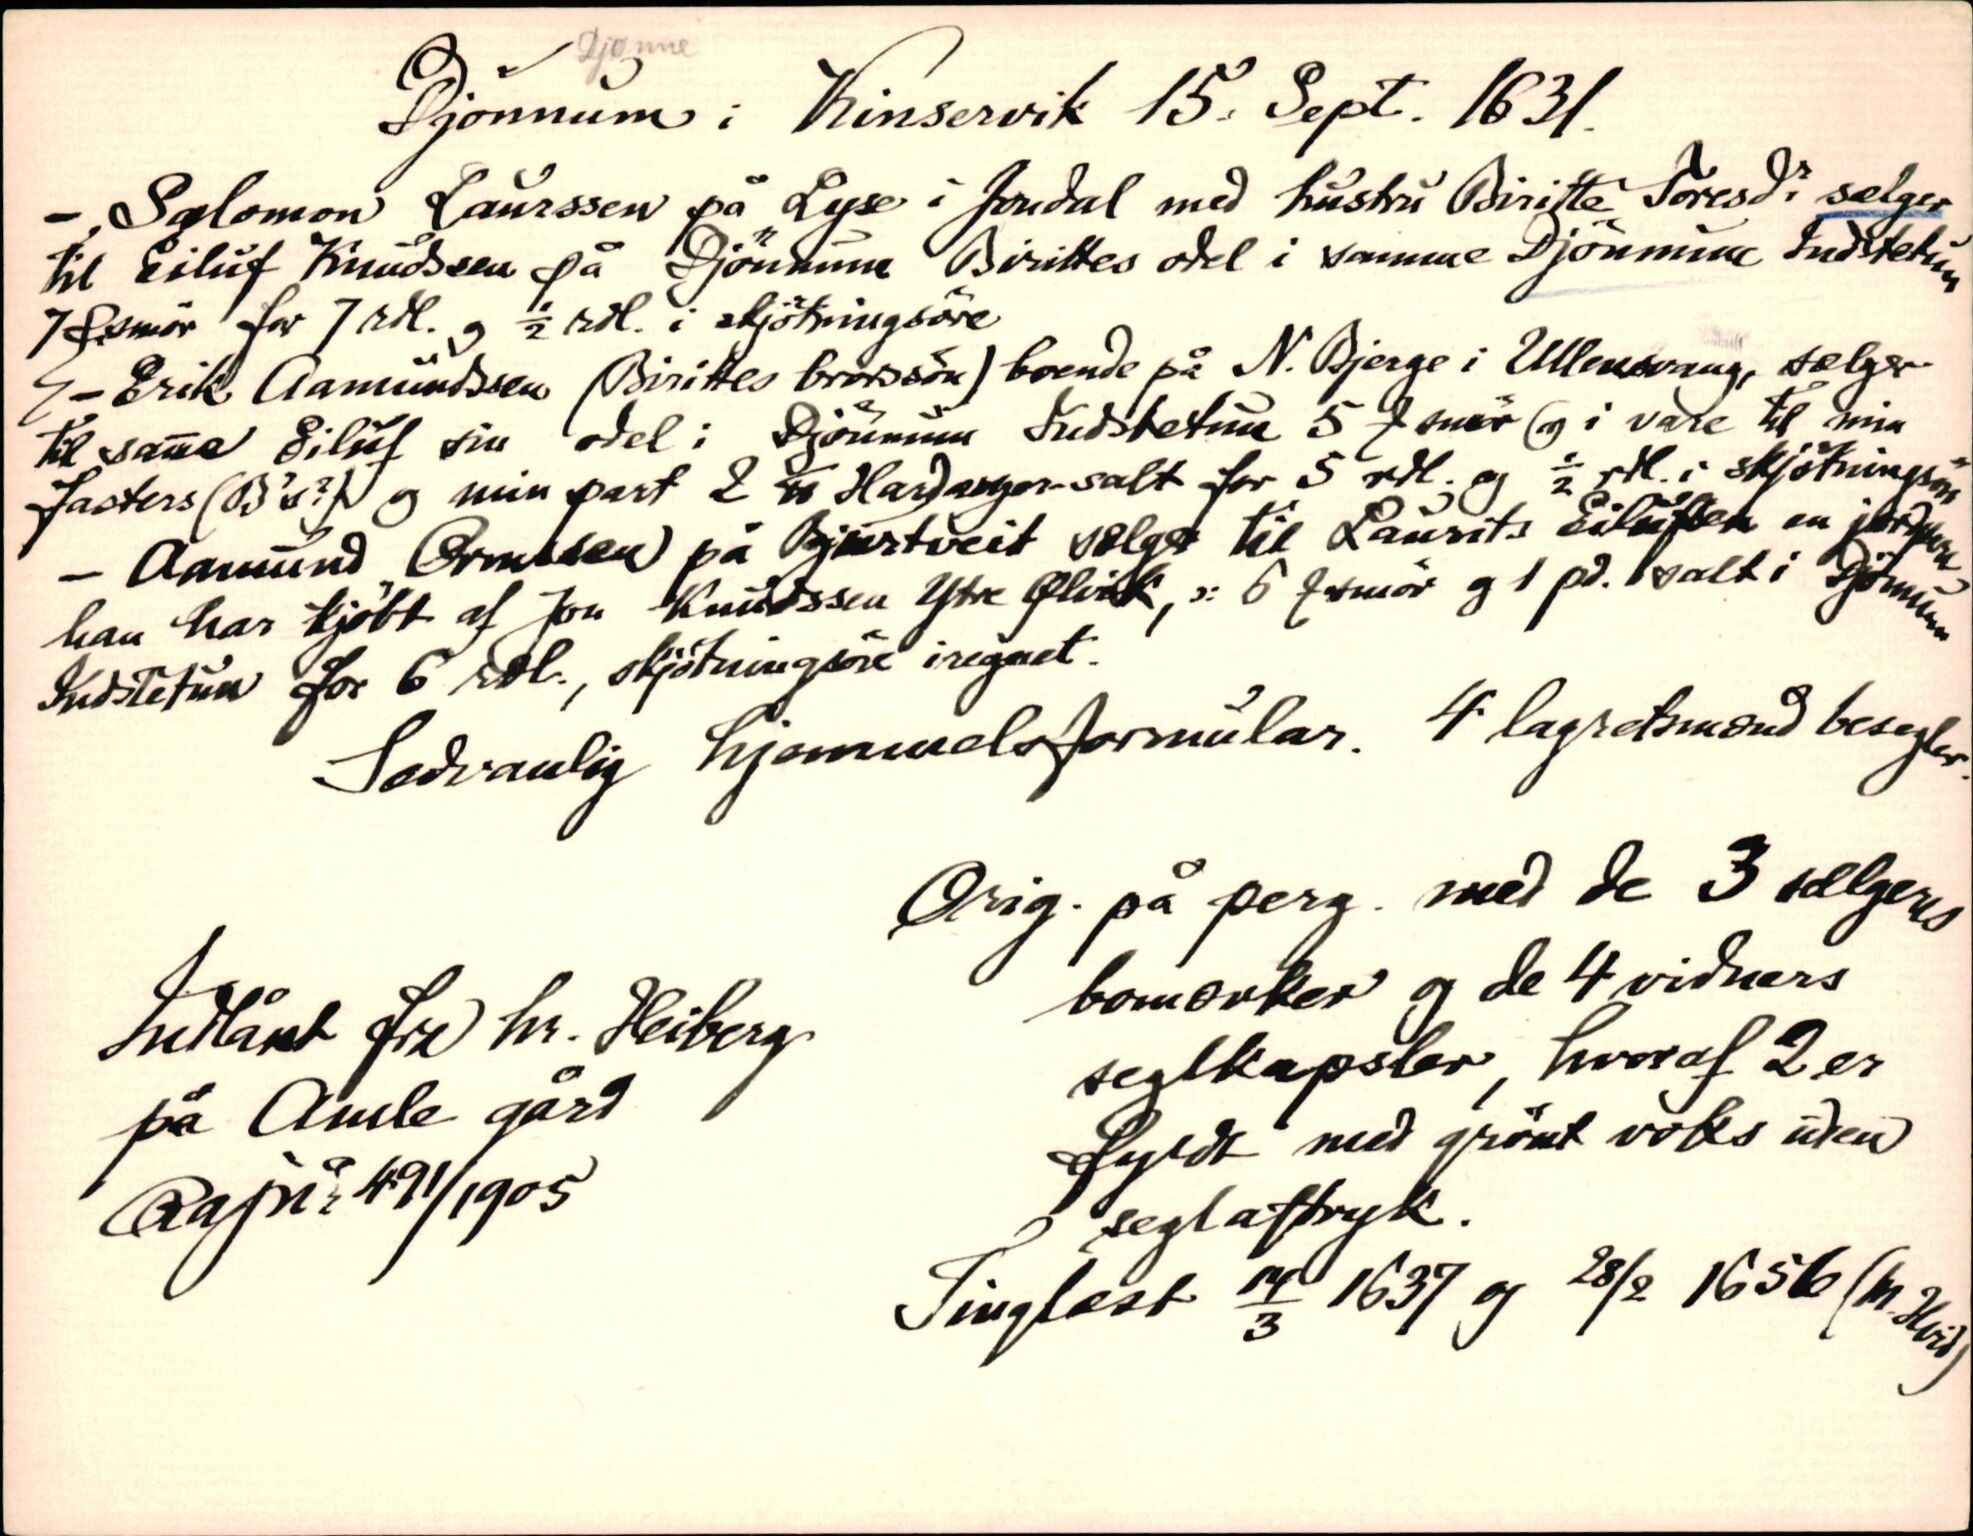 Djønne
Djönnum i Kinservik 15. Sept. 1631.
- Salomon Laurssen på Lyse i Jondal med hustru Biritte Toresdr selger
til Eiluf Knudssen på Djönnum Birittes odel i samme Djönnum Indstetun
7 smör for 7 rdl. og ½ rdl. i skjötningsöre
- Erik Aamundssen (Birittes brorssön) boende på N. Bjerge i Ullensvang, sælger
til same Eiluf sin odel i Djönnum Indstetun 5 smör og i vare til min
fasters (B's?) og min part 2 Hardanger-salt for 5 rdl. og ½ rdl. i skjötningsöre
- Aamund Ormssen på Bjurtveit sælger til Laurits Eilufsen en
han har kjöbt af Jon Knudssen Ytre Ølvik, ɔ: 6 smör og 1 pd. salt i Djönnum
Indstetun for 6 rdl., skjötningsöre iregnet.
Sedvanlig hjemmelsformular. 4 lagretsmænd besegler.
Orig. på perg. med de 3 sælgeres
bomærker og de 4 vidners
seglkapsler, hvoraf 2 er
fyldt med grönt voks uden
seglaftryk.
Tinglæst 14/3 1637 og 28/2 1656 (M. Hvid)
Indlånt fra hr. Heiberg
på Amle gård
Rajnr 491/1905